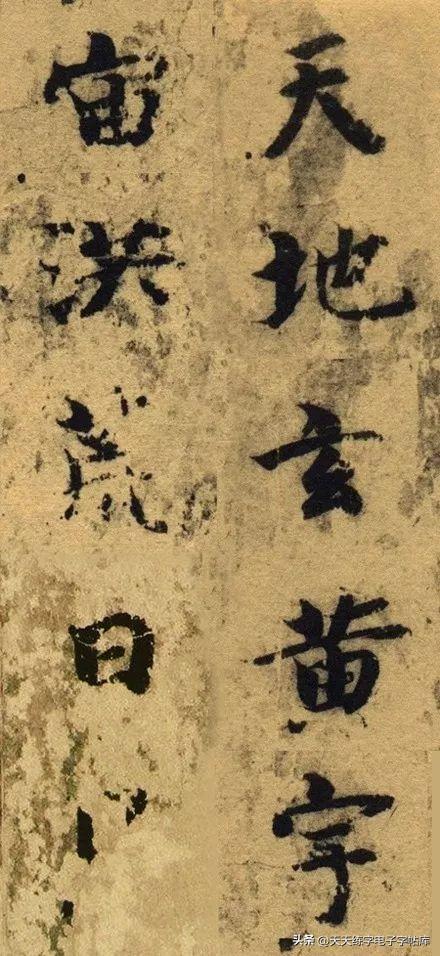 天地玄黄宇
宙洪荒日
头条 @天天练字电子字帖库